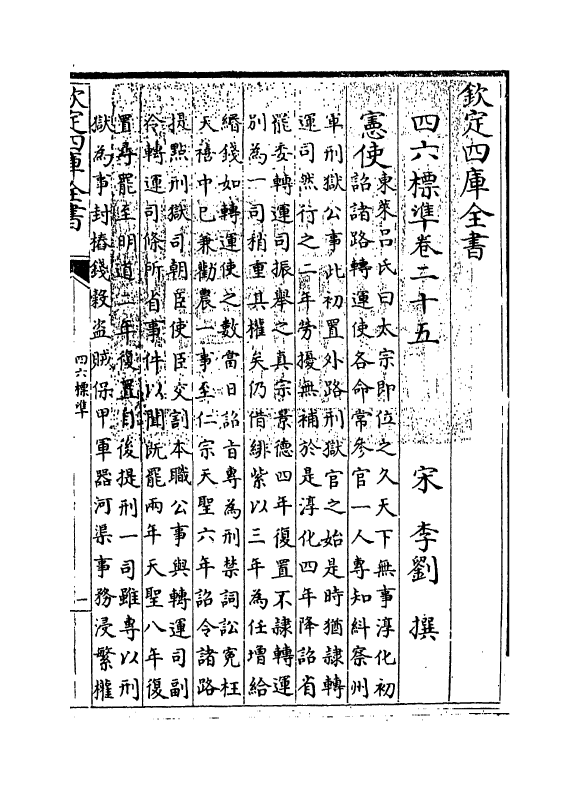 欽定四庫全書
四六標準卷二十五
宋 李劉 撰
憲使
東萊吕氏曰太宗即位之久天下無事淳化初
詔諸路轉運使各命常參官一人專知糾察州
軍刑獄公事此初置外路刑獄官之始是時猶隷轉
運司然行之二年勞擾無補於是淳化四年降詔省
罷委轉運司振舉之真宗景德四年復置不隷轉運
别為一司稍重其權矣仍借緋紫以三年為任增給
緡錢如轉運使之數當日詔旨專為刑禁詞訟寃枉
天禧中已兼勸農一事至仁宗天聖六年詔令諸路
提點刑獄司朝臣使臣交割本職公事與轉運司副
令轉運司條所省事件以聞既罷兩年天聖八年復
置尋罷至明道二年復置自後提刑一司雖専以刑
獄為事封樁錢穀盗賊保甲軍器河渠事務浸繁權
欽定四庫全書
四六標準
一